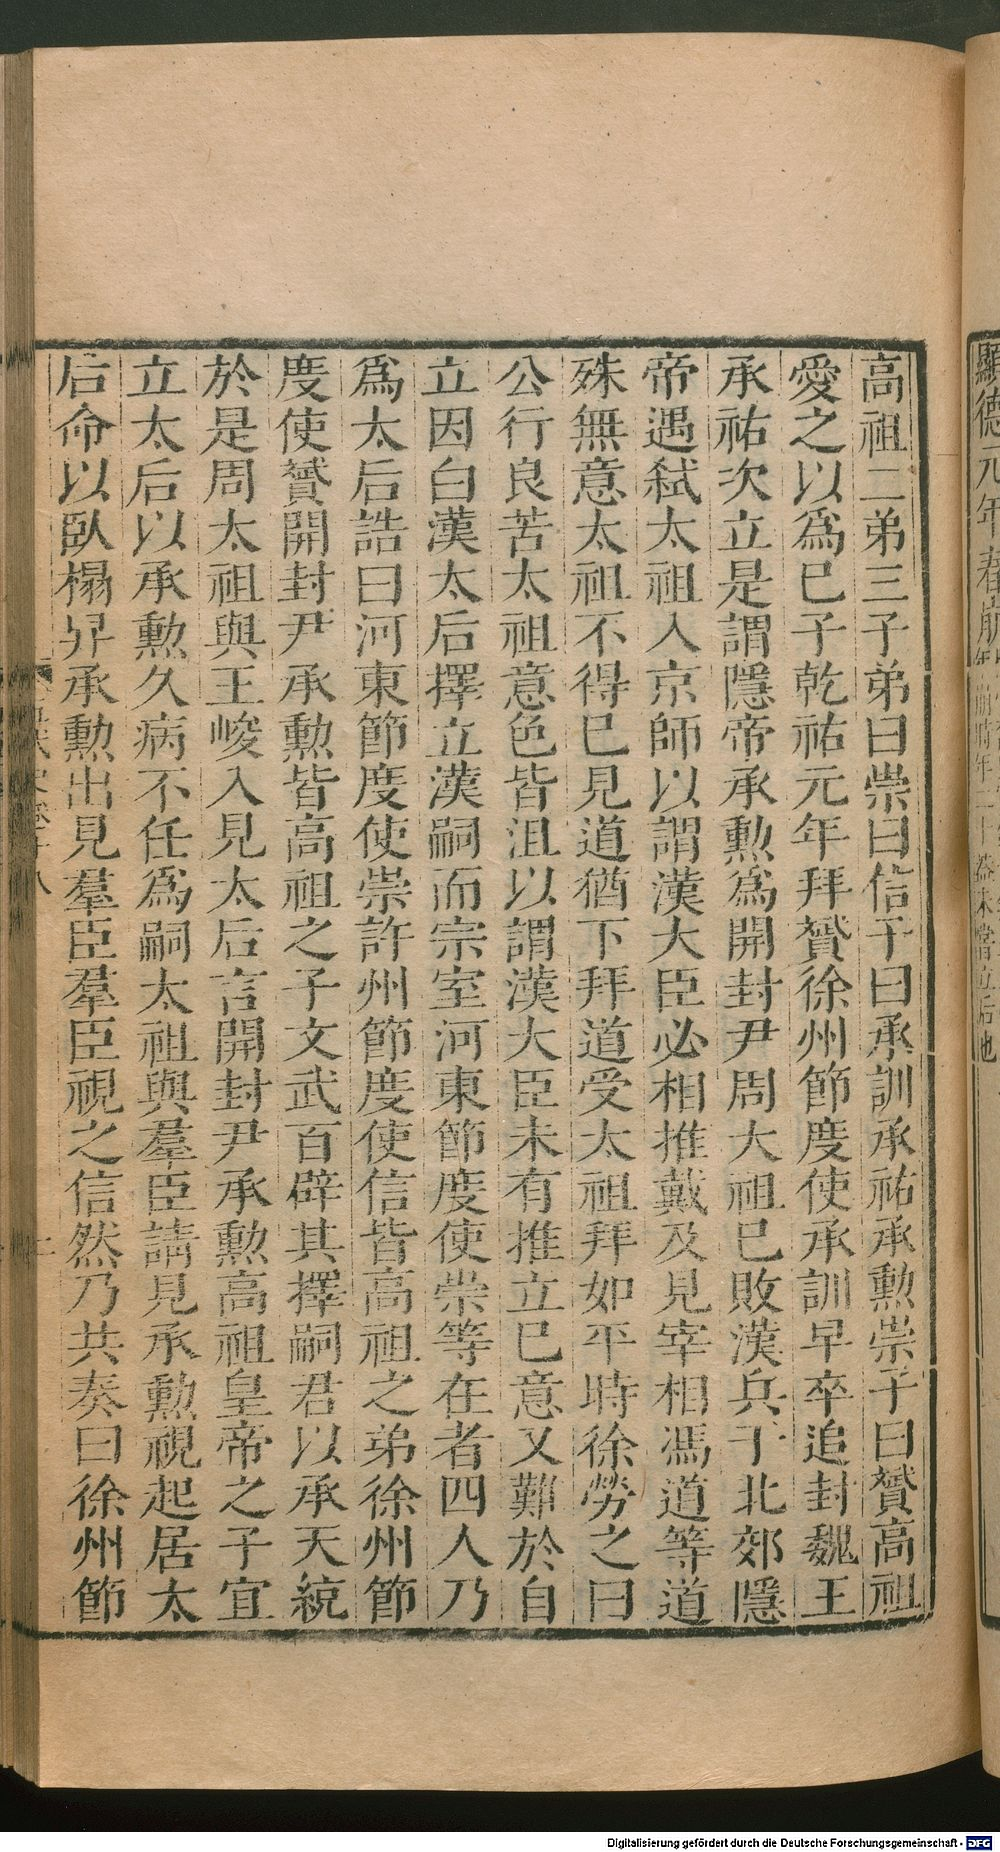 顯德元年春崩
高祖二弟三子弟曰崇曰信子曰承訓承祐承勲崇子曰贇高祖
愛之以爲已子乾祐元年拜贇徐州節度使承訓早卒追封魏王
承祐次立是謂隱帝承勲爲開封尹周太祖已敗漢兵于北郊隱
帝遇弒太祖入京師以謂漢大臣必相推戴及見宰相馮道等道
殊無意太祖不得已見道猶下拜道受太祖拜如平時徐勞之曰
公行良苦太祖意色皆沮以謂漢大臣未有推立已意又難於自
立因白漢太后擇立漢嗣而宗室河東節度使崇等在者四人乃
爲太后誥曰河東節度使崇許州節度使信皆高祖之弟徐州節
度使贇開封尹承勲皆高祖之子文武百辟其擇嗣君以承天統
於是周太祖與王峻入見太后言開封尹承勲高祖皇帝之子宜
立太后以承勲久病不任爲嗣太祖與羣臣請見承勲視起居太
后命以臥榻舁承勲出見羣臣羣臣視之信然乃共奏曰徐州節
Digitalisierung gefördert durch die Deutsche Forschungsgemeinschaft - DFG